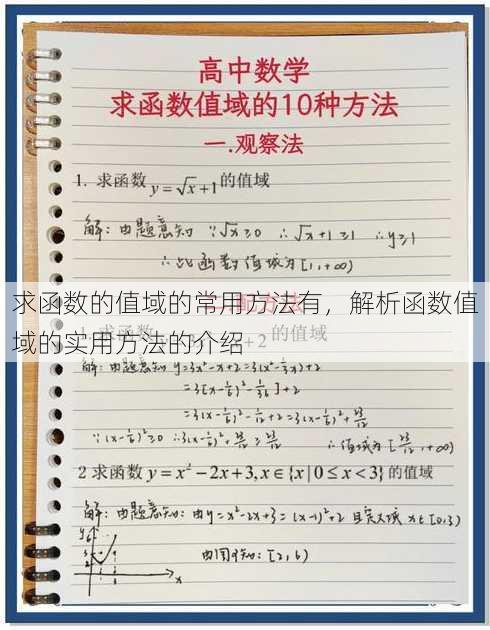 高中数学
求函数值域的10种方法
一.观察法
1. 求函数 y = √x + 1 的值域
解: 由题意知 ∵√x ≥ 0 ∴√x + 1 ≥ 1 ∴y ≥ 1
∴此函数值域为 [1, +∞)
求函数的值域的常用方法有，解析函数值
域的实用方法的介绍
+2 的值域
解: 由题意知 y = 3x² - x + 2 = 3(x² - ⅓x) + 2
= 3[(x - 1/6)² - 1/36] + 2
= 3(x - 1/6)² - 1/12 + 2 = 3(x - 1/6)² + 23/12
∵(x - 1/6)² ≥ 0 ∴3(x - 1/6)² + 23/12 ≥ 23/12 ∴值域为 [23/12, +∞)
2 求函数 y = x² - 2x + 3, x ∈ {x | 0 ≤ x < 3} 的值域
解: 由题意知: 由 y = x² - 2x + 3 = (x - 1)² + 2 且定义域 x ∈ [0, 3)
由图可知: [2, 6)